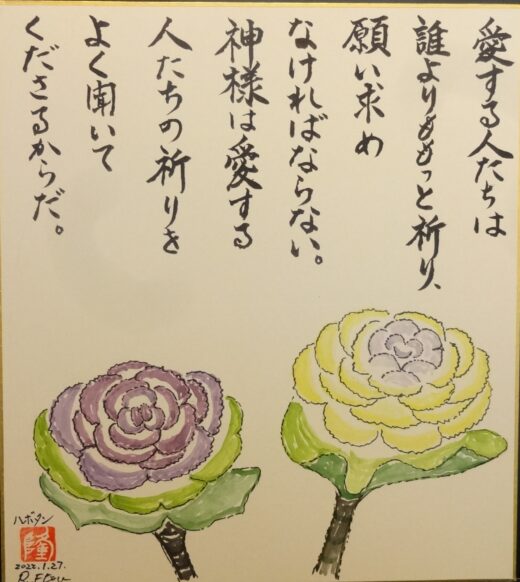 愛する人たちは
誰よりももっと祈り、
願い求め
なければならない。
神様は愛する
人たちの祈りを
よく聞いて
くださるからだ。
ハボタン
隆
2022.1.27.